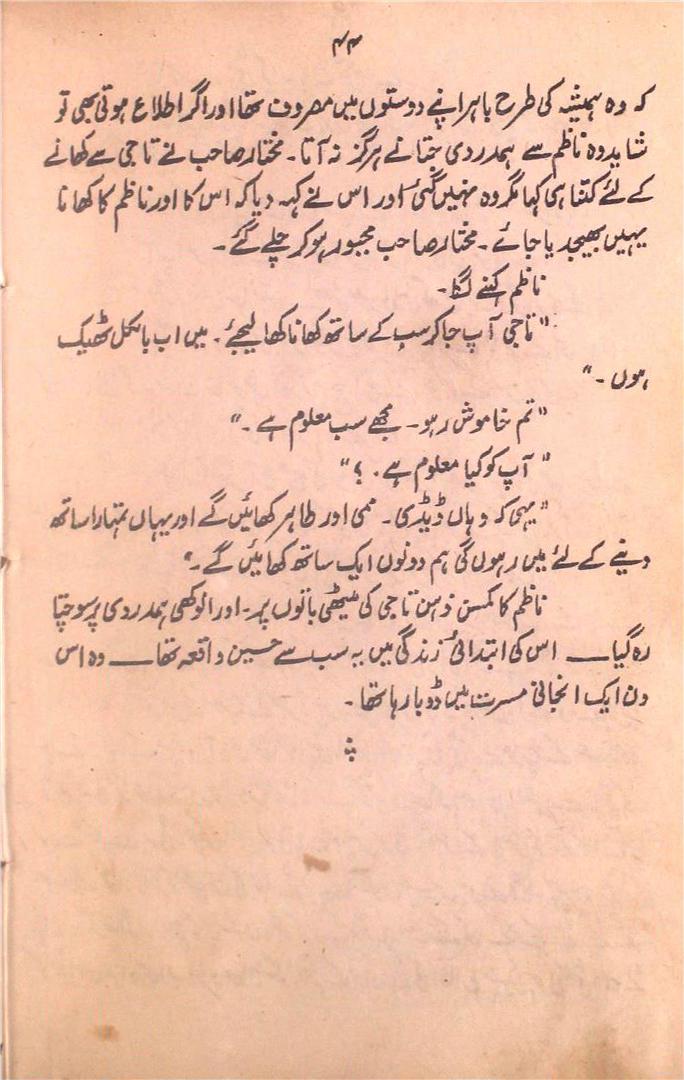 ۴۴
کہ وہ ہمیشہ کی طرح باہر اپنے دوستوں میں مصروف تھا اور اگر اطلاع ہوتی بھی تو
شاید وہ ناظم سے ہمدردی جتانے ہرگز نہ آتا۔ مختار صاحب نے تاجی سے کھانے
کے لئے کتنا ہی کہا مگر وہ نہیں گئی اور اس نے کہہ دیا کہ اس کا اور ناظم کا کھانا
یہیں بھیجدیا جائے۔ مختار صاحب مجبور ہو کر چلے گئے۔
ناظم کہنے لگا۔
"تاجی آپ جا کر سب کے ساتھ کھانا کھا لیجئے۔ میں اب بالکل ٹھیک
ہوں۔"
"تم خاموش رہو۔ مجھے سب معلوم ہے۔"
"آپ کو کیا معلوم ہے۔ ؟"
"یہی کہ وہاں ڈیڈی۔ ممی اور طاہر کھائیں گے اور یہاں تمہارا ساتھ
دینے کے لئے میں رہوں گی ہم دونوں ایک ساتھ کھائیں گے۔"
ناظم کا کمسن ذہن تاجی کی میٹھی باتوں پر۔ اور انوکھی ہمدردی پر سوچتا
رہ گیا ـــ اس کی ابتدائی زندگی میں یہ سب سے حسین واقعہ تھا ـــ وہ اس
دن ایک انجانی مسرت میں ڈوبا رہا تھا۔